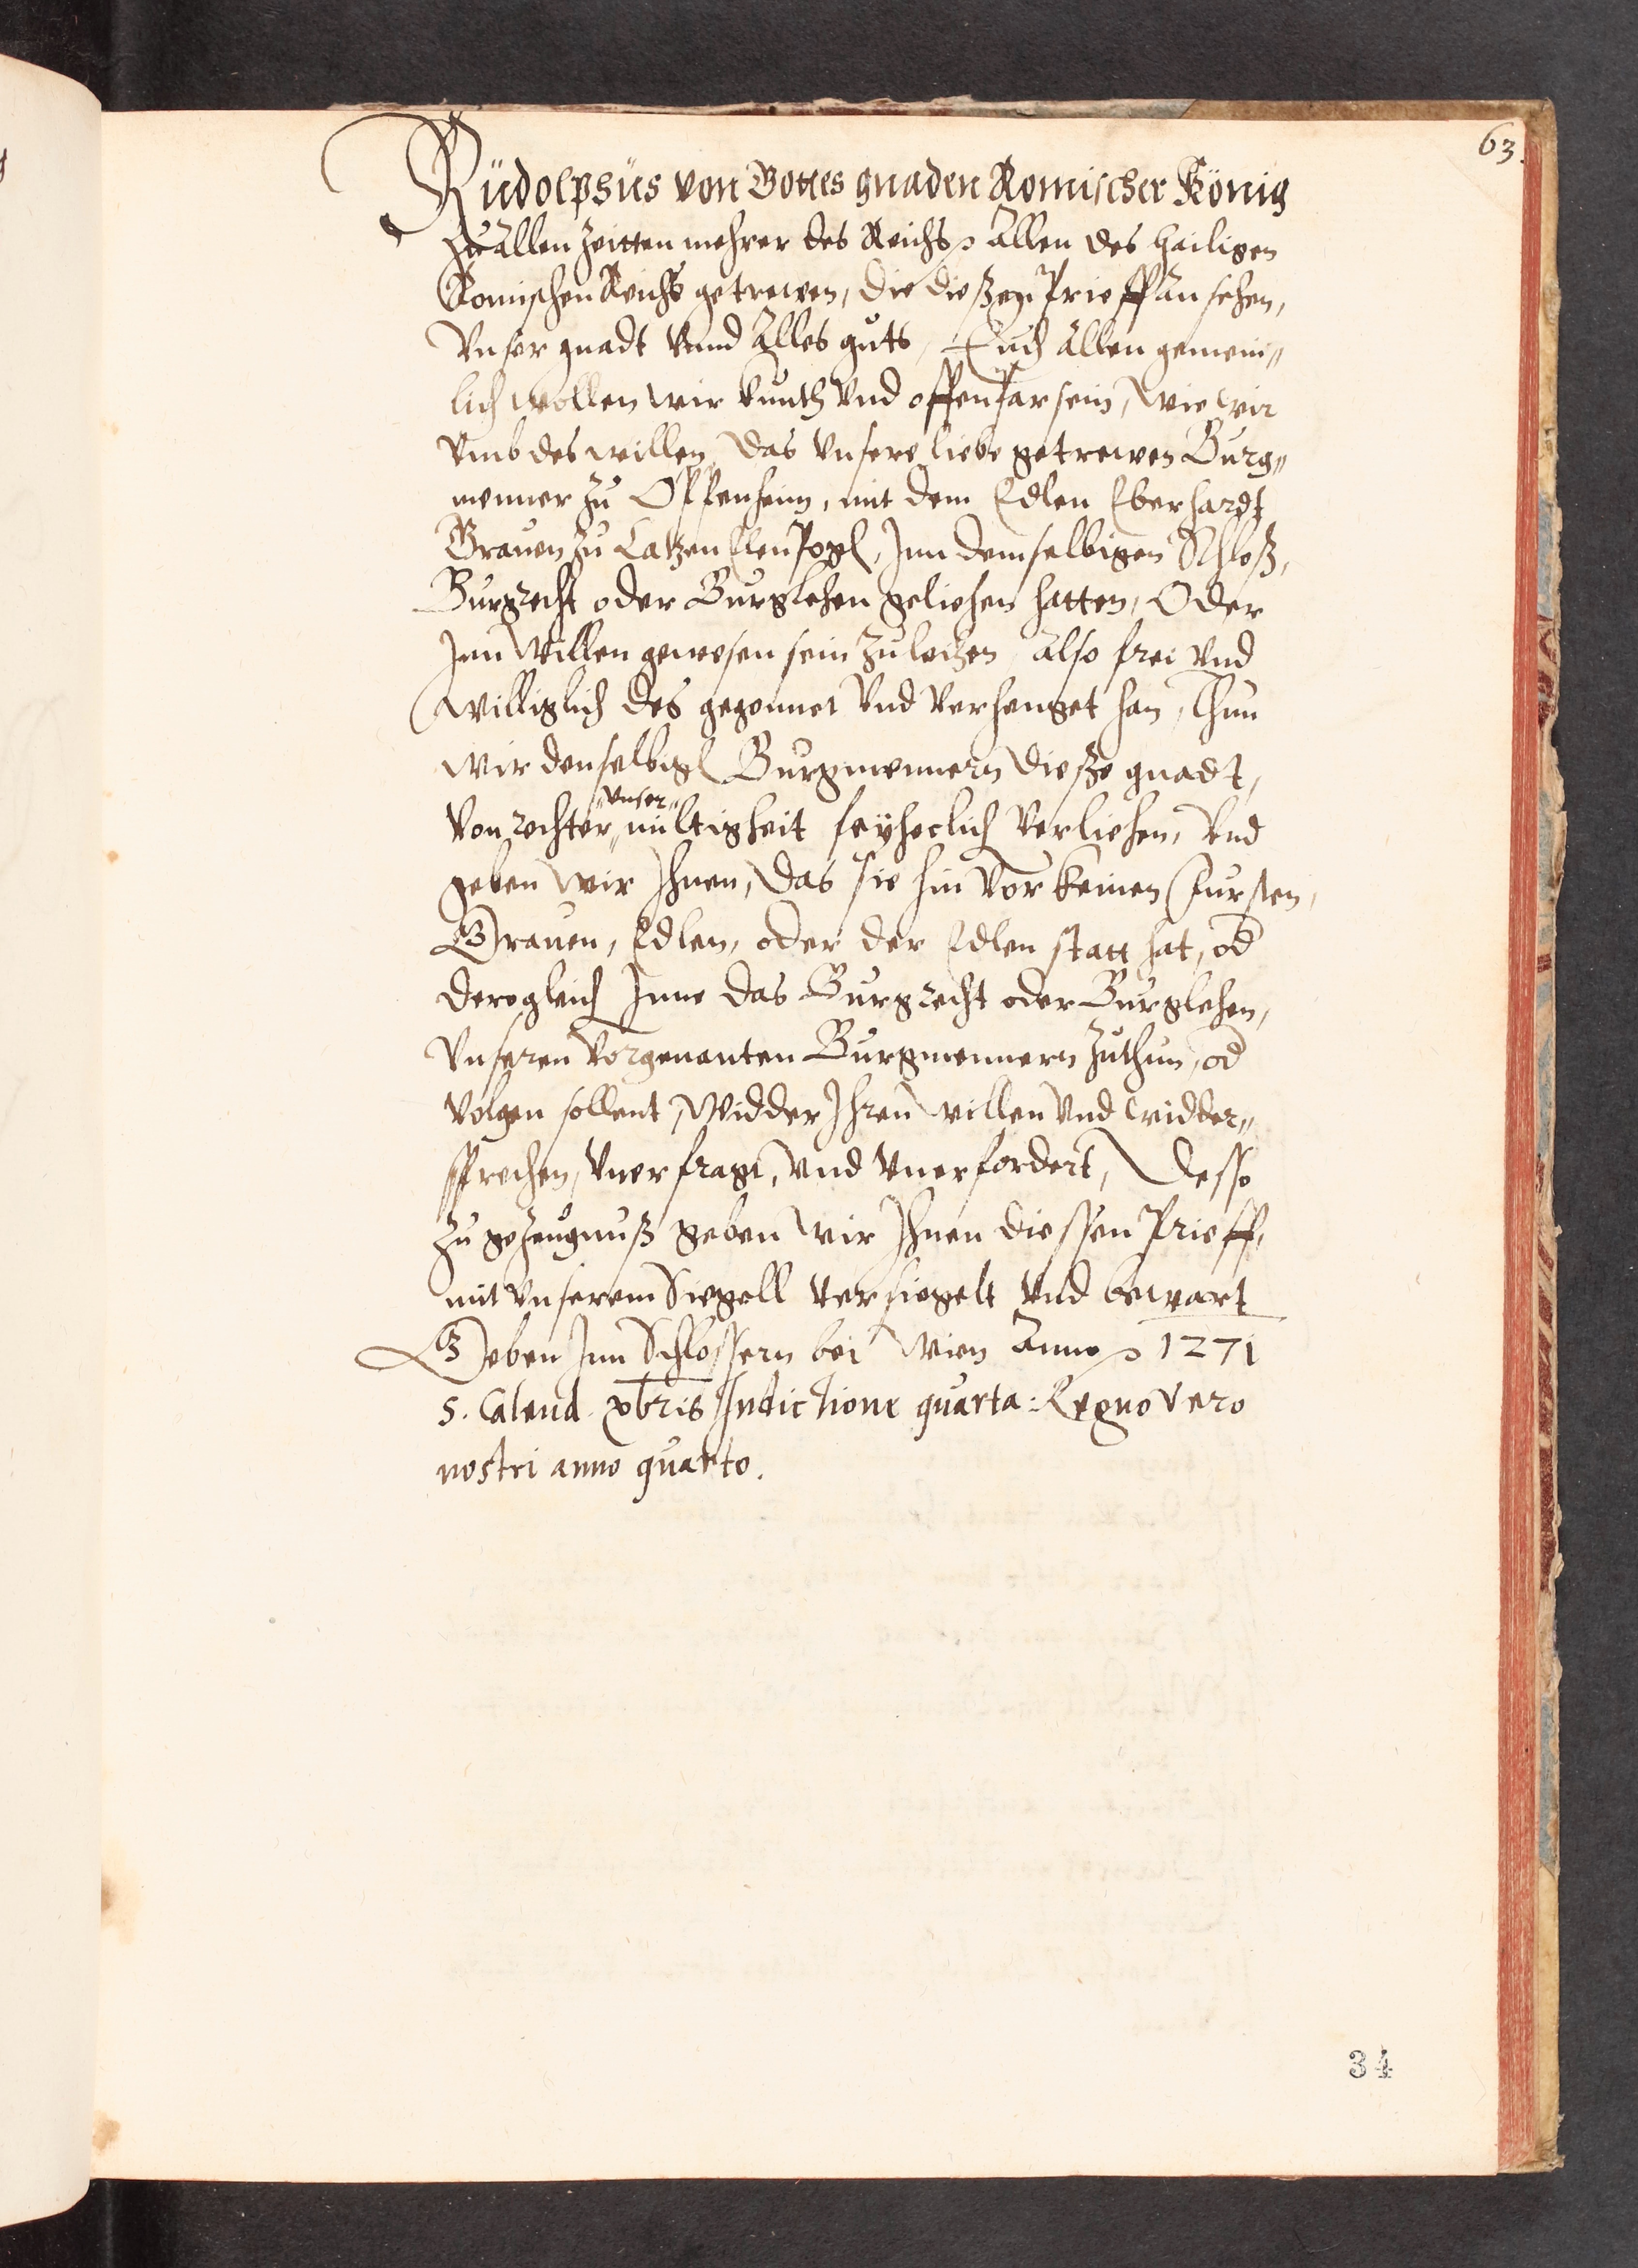 63.
Rudolphus von Gottes gnaden Romischer König
Zu Allen Zeitten mehrer des Reichs Allen des hailigen
Romischen Reichs getrewen, die dießen Prieff an sehen,
Vnser gnadt vnnd Alles guts, Euch Allen gemein„
lich wollen wir kunth vnd offenbar sein, wie wir
vmb des willen, das vnsere liebe getrewen Burg„
menner zu Oppenheim, mit dem Edlen Eberhardt
Grauen zu Catzen Elenpogen, Inn demselbigen Schloß,
Burgrecht oder Burglehen geliehen hatten, Oder
Inn willen gewesen sein zu leihen, Also frei vnd
williglich des gegonnet vnd verhenget han, Thun
wir denselbigen Burgmennern dieße gnadt,
von rechter „vnser„ miltigheit freyheclich verliehen, vnd
geben wir Ihnen, das sie hin vor keinen Fursten,
Grauen, Edlen, oder der Edlen statt hat, od
deregleich Inne das Burgrecht oder Burglehen,
vnseren vorgenanten Burgmennern zuthun, od
volgen sollent, widder Ihren willen vnd widder„
sprechen, vnerfragt, vnd vnerfordert, Desse
zu gezeugnuß geben wir Ihnen diessen Prieff,
mit vnserem Siegell versiegelt vnd bewart
Geben Inn Schlossern bei Wien Anno 1271
5. Calend. xbris Indictione quarta: Regno vero
nostri anno quarto.
34